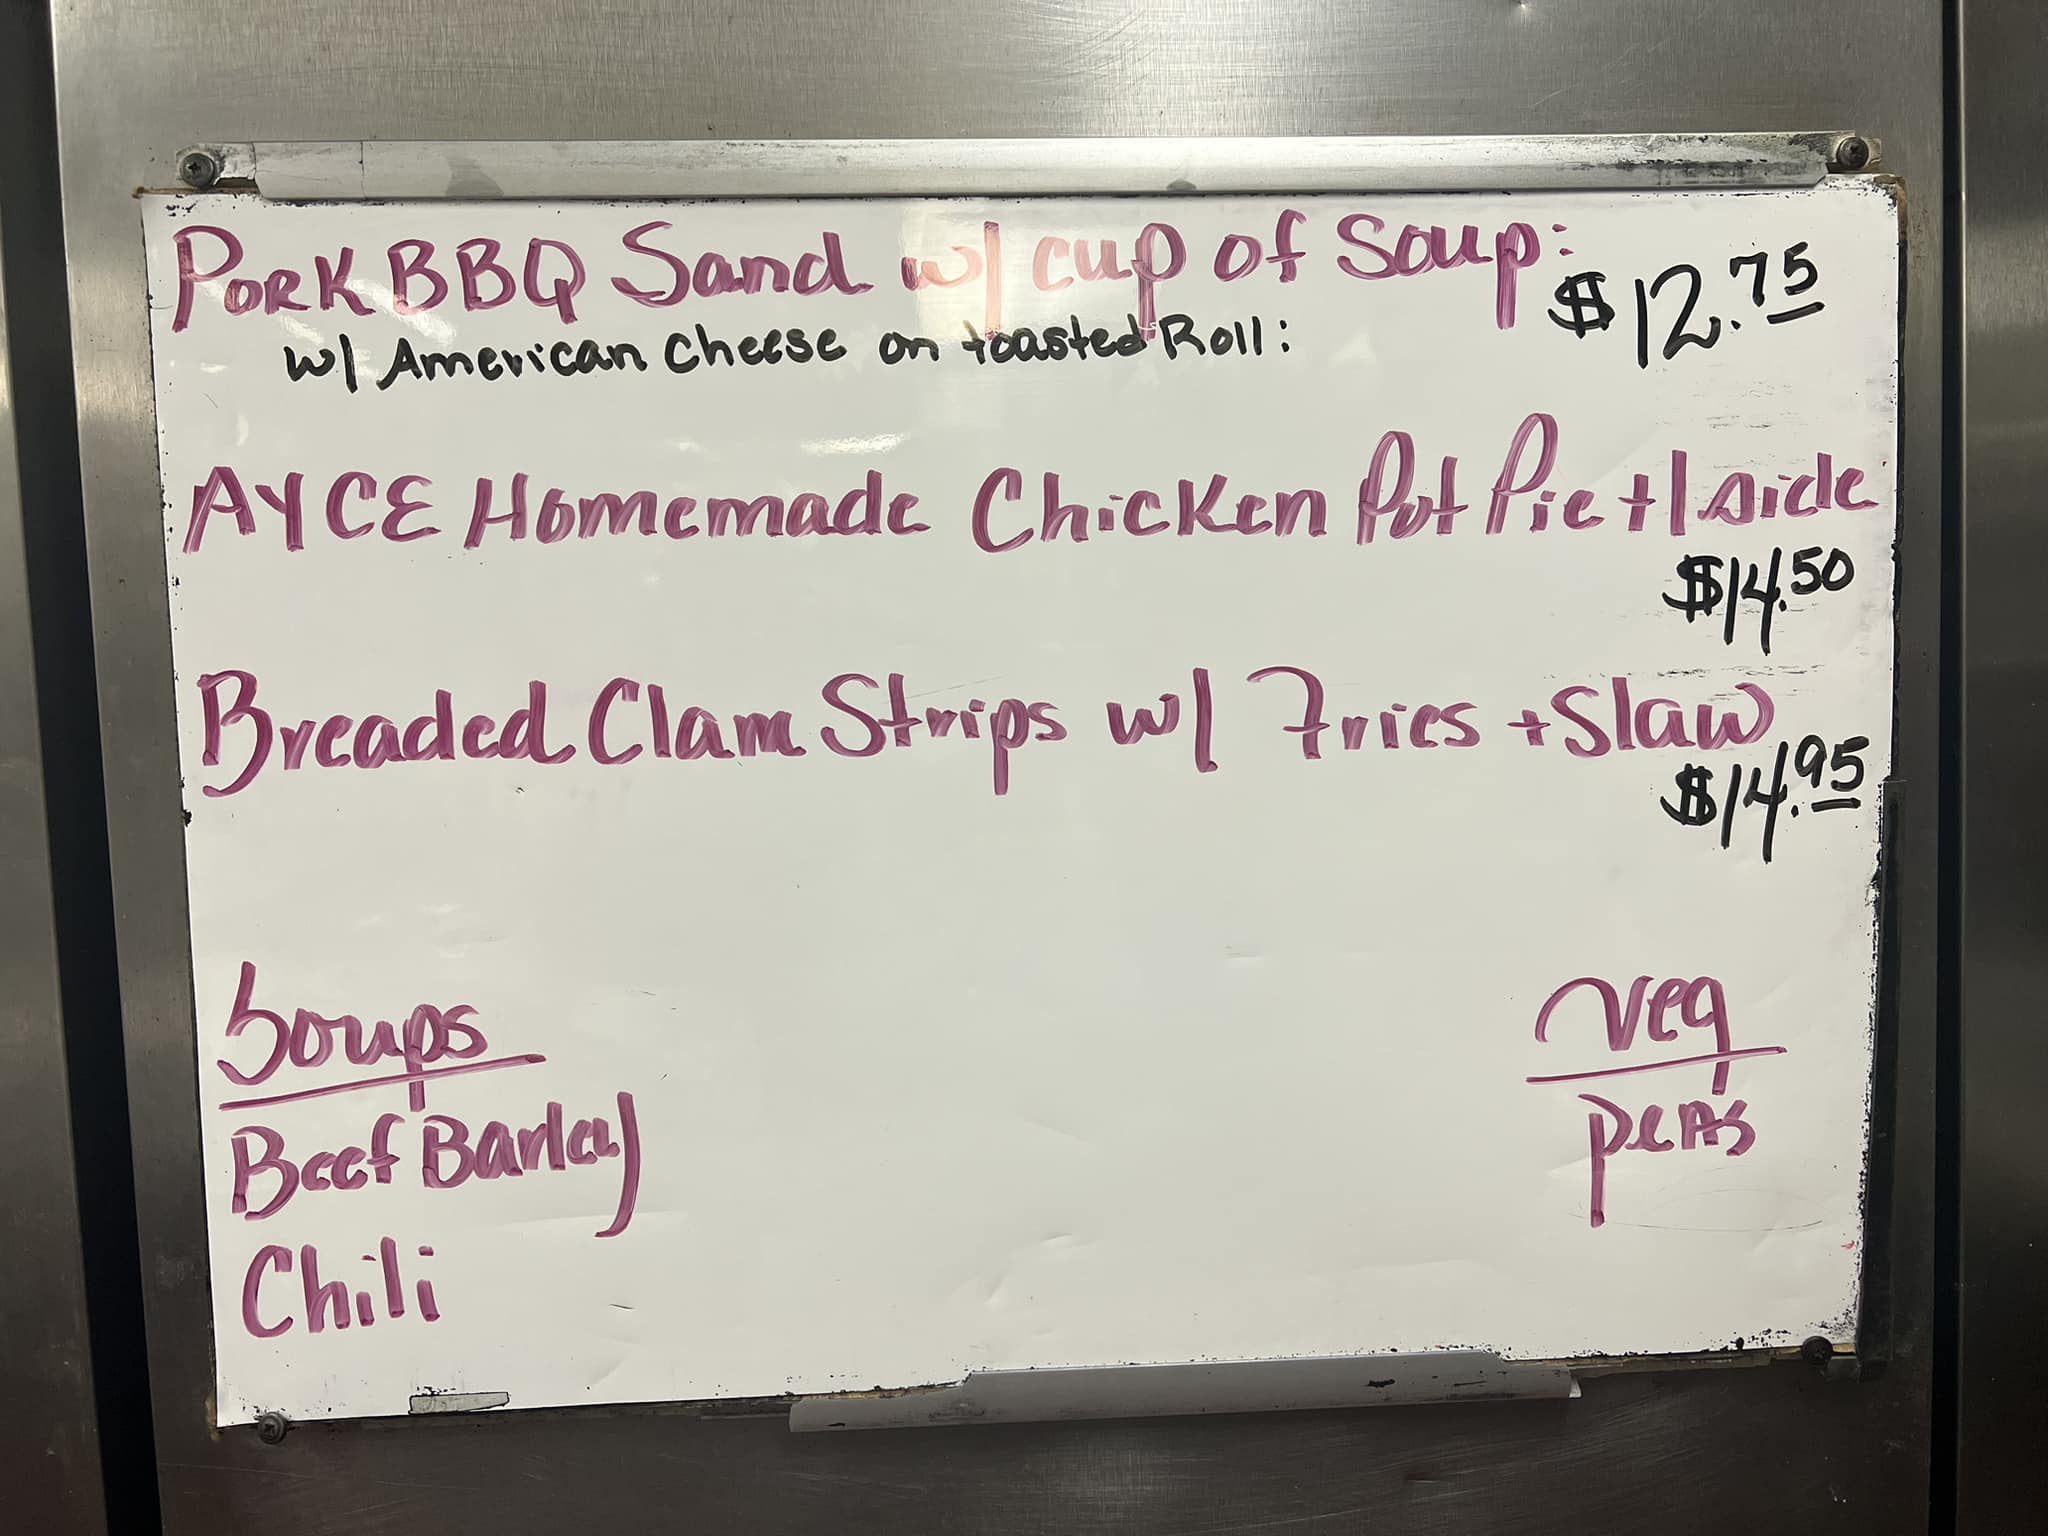 Pork BBQ Sand w/ cup of Soup:
$12.75
w/ American Cheese on toasted Roll:
AYCE Homemade Chicken Pot Pie + 1 side
$14.50
Breaded Clam Strips w/ Fries + Slaw
$14.95
Soups
Beef Barley
Chili
Veg
peas